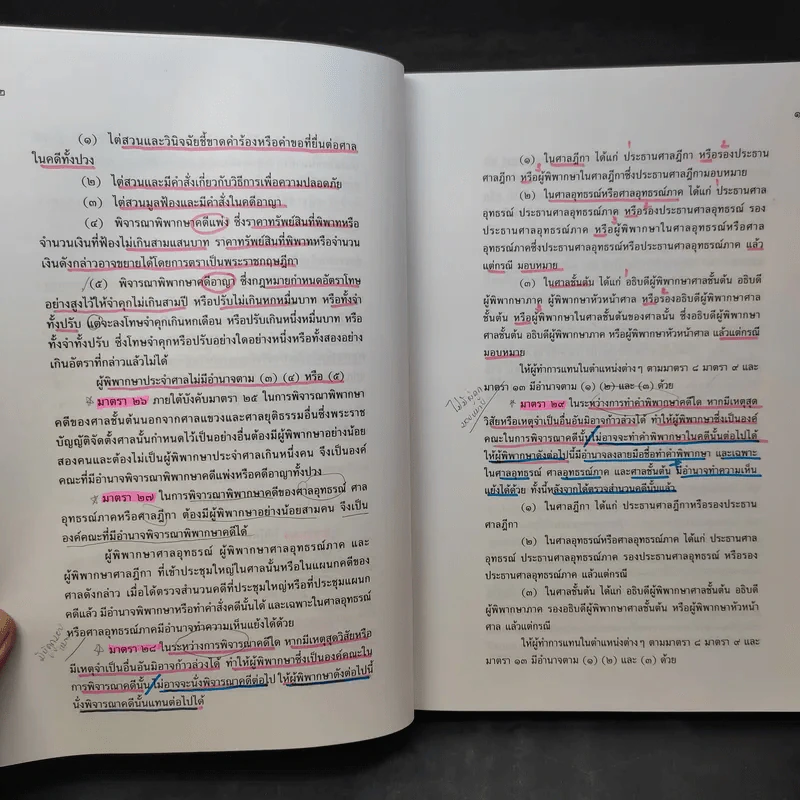 ๒
(๑) ไต่สวนและวินิจฉัยชี้ขาดคำร้องหรือคำขอที่ยื่นต่อศาล
ในคดีทั้งปวง
(๒) ไต่สวนและมีคำสั่งเกี่ยวกับวิธีการเพื่อความปลอดภัย
(๓) ไต่สวนมูลฟ้องและมีคำสั่งในคดีอาญา
(๔) พิจารณาพิพากษาคดีแพ่ง ซึ่งราคาทรัพย์สินที่พิพาทหรือ
จำนวนเงินที่ฟ้องไม่เกินสามแสนบาท ราคาทรัพย์สินที่พิพาทหรือจำนวน
เงินดังกล่าวอาจขยายได้โดยการตราเป็นพระราชกฤษฎีกา
(๕) พิจารณาพิพากษาคดีอาญา ซึ่งกฎหมายกำหนดอัตราโทษ
อย่างสูงไว้ให้จำคุกไม่เกินสามปี หรือปรับไม่เกินหกหมื่นบาท หรือทั้งจำ
ทั้งปรับ แต่จะลงโทษจำคุกเกินหกเดือน หรือปรับเกินหนึ่งหมื่นบาท หรือ
ทั้งจำทั้งปรับ ซึ่งโทษจำคุกหรือปรับอย่างใดอย่างหนึ่งหรือทั้งสองอย่าง
เกินอัตราที่กล่าวแล้วไม่ได้
ผู้พิพากษาประจำศาลไม่มีอำนาจตาม (๓) (๔) หรือ (๕)
มาตรา ๒๖ ภายใต้บังคับมาตรา ๒๕ ในการพิจารณาพิพากษา
คดีของศาลชั้นต้นนอกจากศาลแขวงและศาลยุติธรรมอื่นซึ่งพระราช
บัญญัติจัดตั้งศาลนั้นกำหนดไว้เป็นอย่างอื่นต้องมีผู้พิพากษาอย่างน้อย
สองคนและต้องไม่เป็นผู้พิพากษาประจำศาลเกินหนึ่งคน จึงเป็นองค์
คณะที่มีอำนาจพิจารณาพิพากษาคดีแพ่งหรือคดีอาญาทั้งปวง
มาตรา ๒๗ ในการพิจารณาพิพากษาคดีของศาลอุทธรณ์ ศาล
อุทธรณ์ภาคหรือศาลฎีกา ต้องมีผู้พิพากษาอย่างน้อยสามคน จึงเป็น
องค์คณะที่มีอำนาจพิจารณาพิพากษาคดีได้
ผู้พิพากษาศาลอุทธรณ์ ผู้พิพากษาศาลอุทธรณ์ภาค และ
ผู้พิพากษาศาลฎีกา ที่เข้าประชุมใหญ่ในศาลนั้นหรือในแผนกคดีของ
ศาลดังกล่าว เมื่อได้ตรวจสำนวนคดีที่ประชุมใหญ่หรือที่ประชุมแผนก
คดีแล้ว มีอำนาจพิพากษาหรือทำคำสั่งคดีนั้นได้ และเฉพาะในศาลอุทธรณ์
หรือศาลอุทธรณ์ภาคมีอำนาจทำความเห็นแย้งได้ด้วย
มาตรา ๒๘ ในระหว่างการพิจารณาคดีใด หากมีเหตุสุดวิสัยหรือ
มีเหตุจำเป็นอื่นอันมิอาจก้าวล่วงได้ ทำให้ผู้พิพากษาซึ่งเป็นองค์คณะใน
การพิจารณาคดีนั้น ไม่อาจจะนั่งพิจารณาคดีต่อไป ให้ผู้พิพากษาดังต่อไปนี้
นั่งพิจารณาคดีนั้นแทนต่อไปได้
(๑) ในศาลฎีกา ได้แก่ ประธานศาลฎีกา หรือรองประธาน
ศาลฎีกา หรือผู้พิพากษาในศาลฎีกาซึ่งประธานศาลฎีกามอบหมาย
(๒) ในศาลอุทธรณ์หรือศาลอุทธรณ์ภาค ได้แก่ ประธานศาล
อุทธรณ์ ประธานศาลอุทธรณ์ภาค หรือรองประธานศาลอุทธรณ์ รอง
ประธานศาลอุทธรณ์ภาค หรือผู้พิพากษาในศาลอุทธรณ์หรือศาล
อุทธรณ์ภาคซึ่งประธานศาลอุทธรณ์หรือประธานศาลอุทธรณ์ภาค แล้ว
แต่กรณี มอบหมาย
(๓) ในศาลชั้นต้น ได้แก่ อธิบดีผู้พิพากษาศาลชั้นต้น อธิบดี
ผู้พิพากษาภาค ผู้พิพากษาหัวหน้าศาล หรือรองอธิบดีผู้พิพากษาศาล
ชั้นต้น หรือผู้พิพากษาในศาลชั้นต้นของศาลนั้น ซึ่งอธิบดีผู้พิพากษาศาล
ชั้นต้น อธิบดีผู้พิพากษาภาค หรือผู้พิพากษาหัวหน้าศาล แล้วแต่กรณี
มอบหมาย
ให้ผู้ทำการแทนในตำแหน่งต่างๆ ตามมาตรา ๘ มาตรา ๙ และ
มาตรา ๑๓ มีอำนาจตาม (๑) (๒) และ (๓) ด้วย
มาตรา ๒๙ ในระหว่างการทำคำพิพากษาคดีใด หากมีเหตุสุด
วิสัยหรือเหตุจำเป็นอื่นอันมิอาจก้าวล่วงได้ ทำให้ผู้พิพากษาซึ่งเป็นองค์
คณะในการพิจารณาคดีนั้น ไม่อาจจะทำคำพิพากษาในคดีนั้นต่อไปได้
ให้ผู้พิพากษาดังต่อไปนี้มีอำนาจลงลายมือชื่อทำคำพิพากษา และเฉพาะ
ในศาลอุทธรณ์ ศาลอุทธรณ์ภาค และศาลชั้นต้น มีอำนาจทำความเห็น
แย้งได้ด้วย ทั้งนี้หลังจากได้ตรวจสำนวนคดีนั้นแล้ว
(๑) ในศาลฎีกา ได้แก่ ประธานศาลฎีกาหรือรองประธาน
ศาลฎีกา
(๒) ในศาลอุทธรณ์หรือศาลอุทธรณ์ภาค ได้แก่ ประธานศาล
อุทธรณ์ ประธานศาลอุทธรณ์ภาค รองประธานศาลอุทธรณ์ หรือรอง
ประธานศาลอุทธรณ์ภาค แล้วแต่กรณี
(๓) ในศาลชั้นต้น ได้แก่ อธิบดีผู้พิพากษาศาลชั้นต้น อธิบดี
ผู้พิพากษาภาค รองอธิบดีผู้พิพากษาศาลชั้นต้น หรือผู้พิพากษาหัวหน้า
ศาล แล้วแต่กรณี
ให้ผู้ทำการแทนในตำแหน่งต่างๆ ตามมาตรา ๘ มาตรา ๙ และ
มาตรา ๑๓ มีอำนาจตาม (๑) (๒) และ (๓) ด้วย